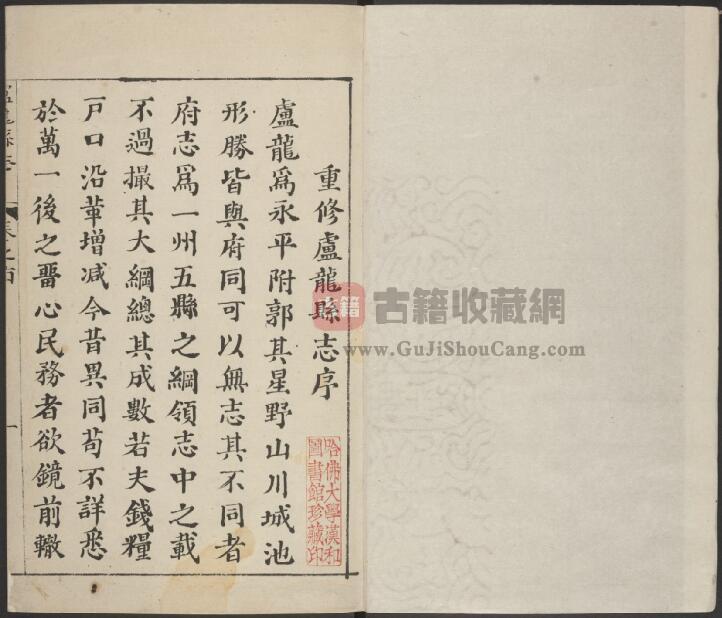 重修盧龍縣志序
盧龍爲永平附郭其星野山川城池
形勝皆與府同可以無志其不同者
府志爲一州五縣之綱領志中之載
不過撮其大綱總其成數若夫錢糧
戸口沿革增减今昔異同苟不詳悉
於萬一後之畱心民務者欲鏡前轍
一
哈佛大學漢和
圖書館珍藏印
古籍
古籍收藏網
www.GuJiShouCang.com